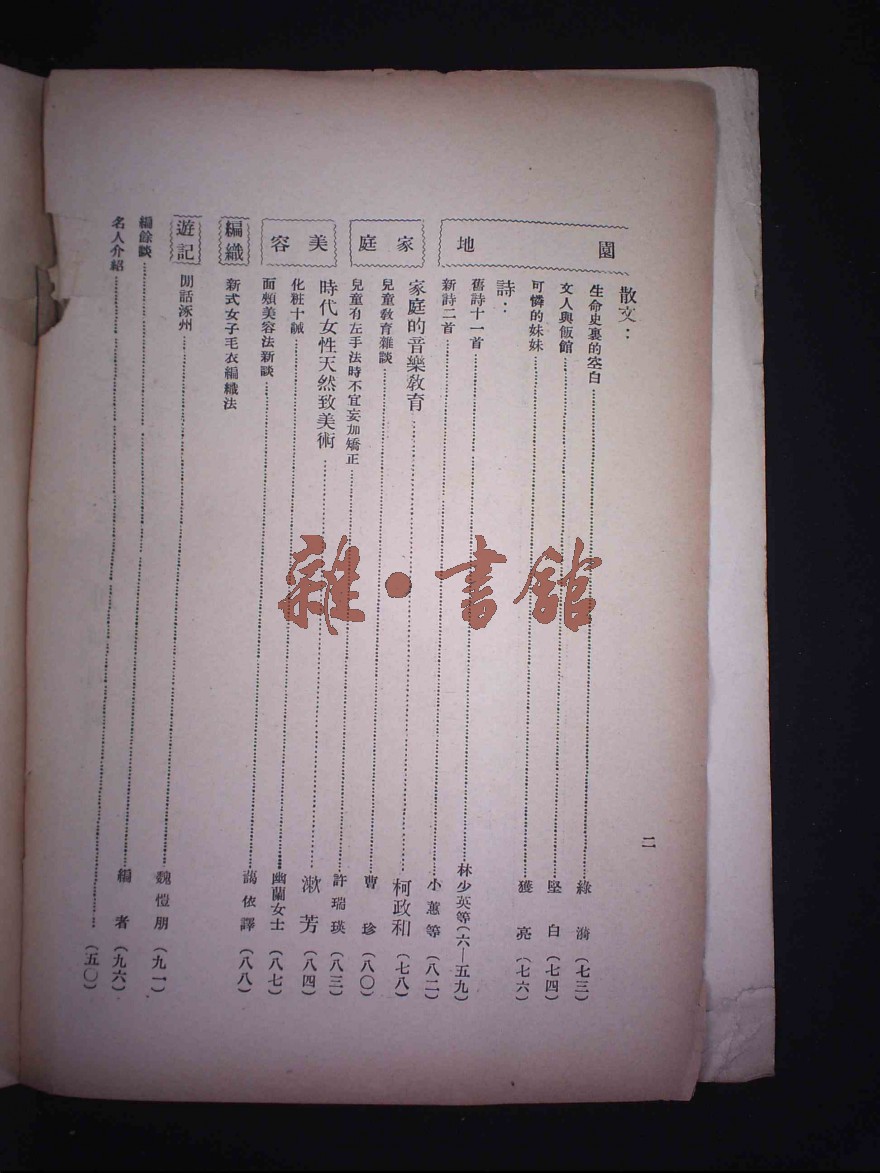 園地
散文：
生命史裏的空白 綠漪（七三）
文人與飯館 堅白（七四）
可憐的妹妹 獲亮（七六）
詩：
舊詩十一首 林少英等（六—五九）
新詩二首 小蕙等（八二）
家庭
家庭的音樂教育 柯政和（七八）
兒童教育雜談 曹珍（八〇）
兒童有左手法時不宜妄加矯正 許瑞瑛（八三）
美容
時代女性天然致美術 漱芳（八四）
化粧十誡 幽蘭女士（八七）
面頰美容法新談 依譯（八八）
編織
新式女子毛衣編織法
遊記
閒話涿州 魏愷朋（九一）
編餘談 編者（九六）
名人介紹 （五〇）
二
雜·書館